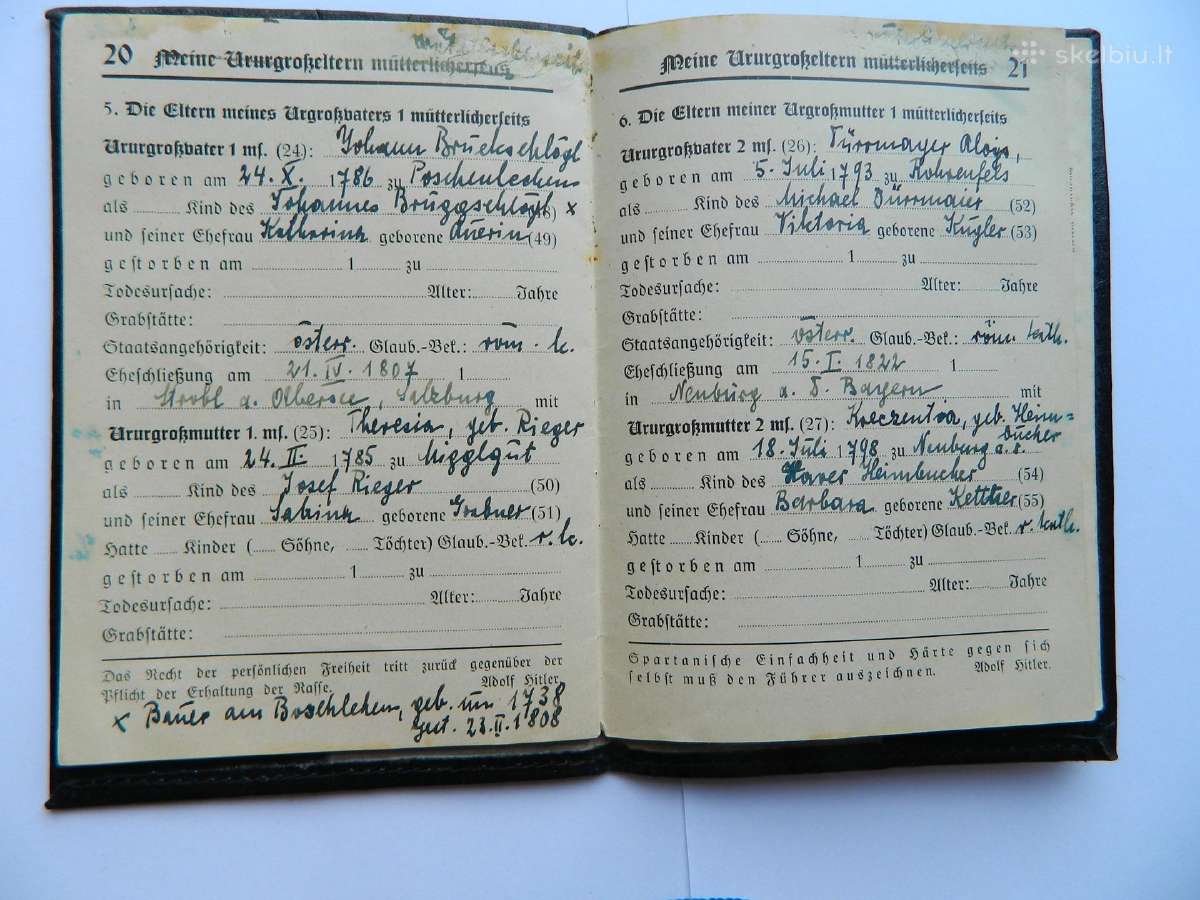 20 Meine Ururgroßeltern mütterlicherseits
5. Die Eltern meines Urgroßvaters 1 mütterlicherseits
Ururgroßvater 1 ms. (24): Johann Bruckschlögl
geboren am 24. X. 1786 zu Poschenlechens
als Kind des Johannes Bruggschlögl x
und seiner Ehefrau Katharina geborene Auerin (49)
gestorben am 1 zu
Todesursache: Alter: Jahre
Grabstätte:
Staatsangehörigkeit: österr. Glaub.-Bek.: röm. k.
Eheschließung am 21. IV. 1807 1
in Strobl a. Abersee, Salzburg mit
Ururgroßmutter 1. ms. (25): Theresia, geb. Rieger
geboren am 24. II. 1785 zu Migglgut
als Kind des Josef Rieger (50)
und seiner Ehefrau Sabina geborene Grabner (51)
Hatte Kinder ( Söhne, Töchter) Glaub.-Bek. r. k.
gestorben am 1 zu
Todesursache: Alter: Jahre
Grabstätte:
Das Recht der persönlichen Freiheit tritt zurück gegenüber der
Pflicht der Erhaltung der Rasse. Adolf Hitler.
x Bauer am Boschlehen, geb. um 1738
gest. 23. II. 1808
skelbiu.lt
Meine Ururgroßeltern mütterlicherseits 21
6. Die Eltern meiner Urgroßmutter 1 mütterlicherseits
Ururgroßvater 2 ms. (26): Dürrmayer Alois,
geboren am 5. Juli 1793 zu Rohrenfels
als Kind des Michael Dürrmaier (52)
und seiner Ehefrau Viktoria geborene Kugler (53)
gestorben am 1 zu
Todesursache: Alter: Jahre
Grabstätte:
Staatsangehörigkeit: österr. Glaub.-Bek.: röm. kath.
Eheschließung am 15. I. 1822 1
in Neuburg a. D. Bayern mit
Ururgroßmutter 2 ms. (27): Kreczentia, geb. Heim=
bucher
geboren am 18. Juli 1798 zu Neuburg a. D.
als Kind des Xaver Heimbucher (54)
und seiner Ehefrau Barbara geborene (55)
Hatte Kinder ( Söhne, Töchter) Glaub.-Bek. r. kath.
gestorben am 1 zu
Todesursache: Alter: Jahre
Grabstätte:
Spartanische Einfachheit und Härte gegen sich
selbst muß den Führer auszeichnen. Adolf Hitler.